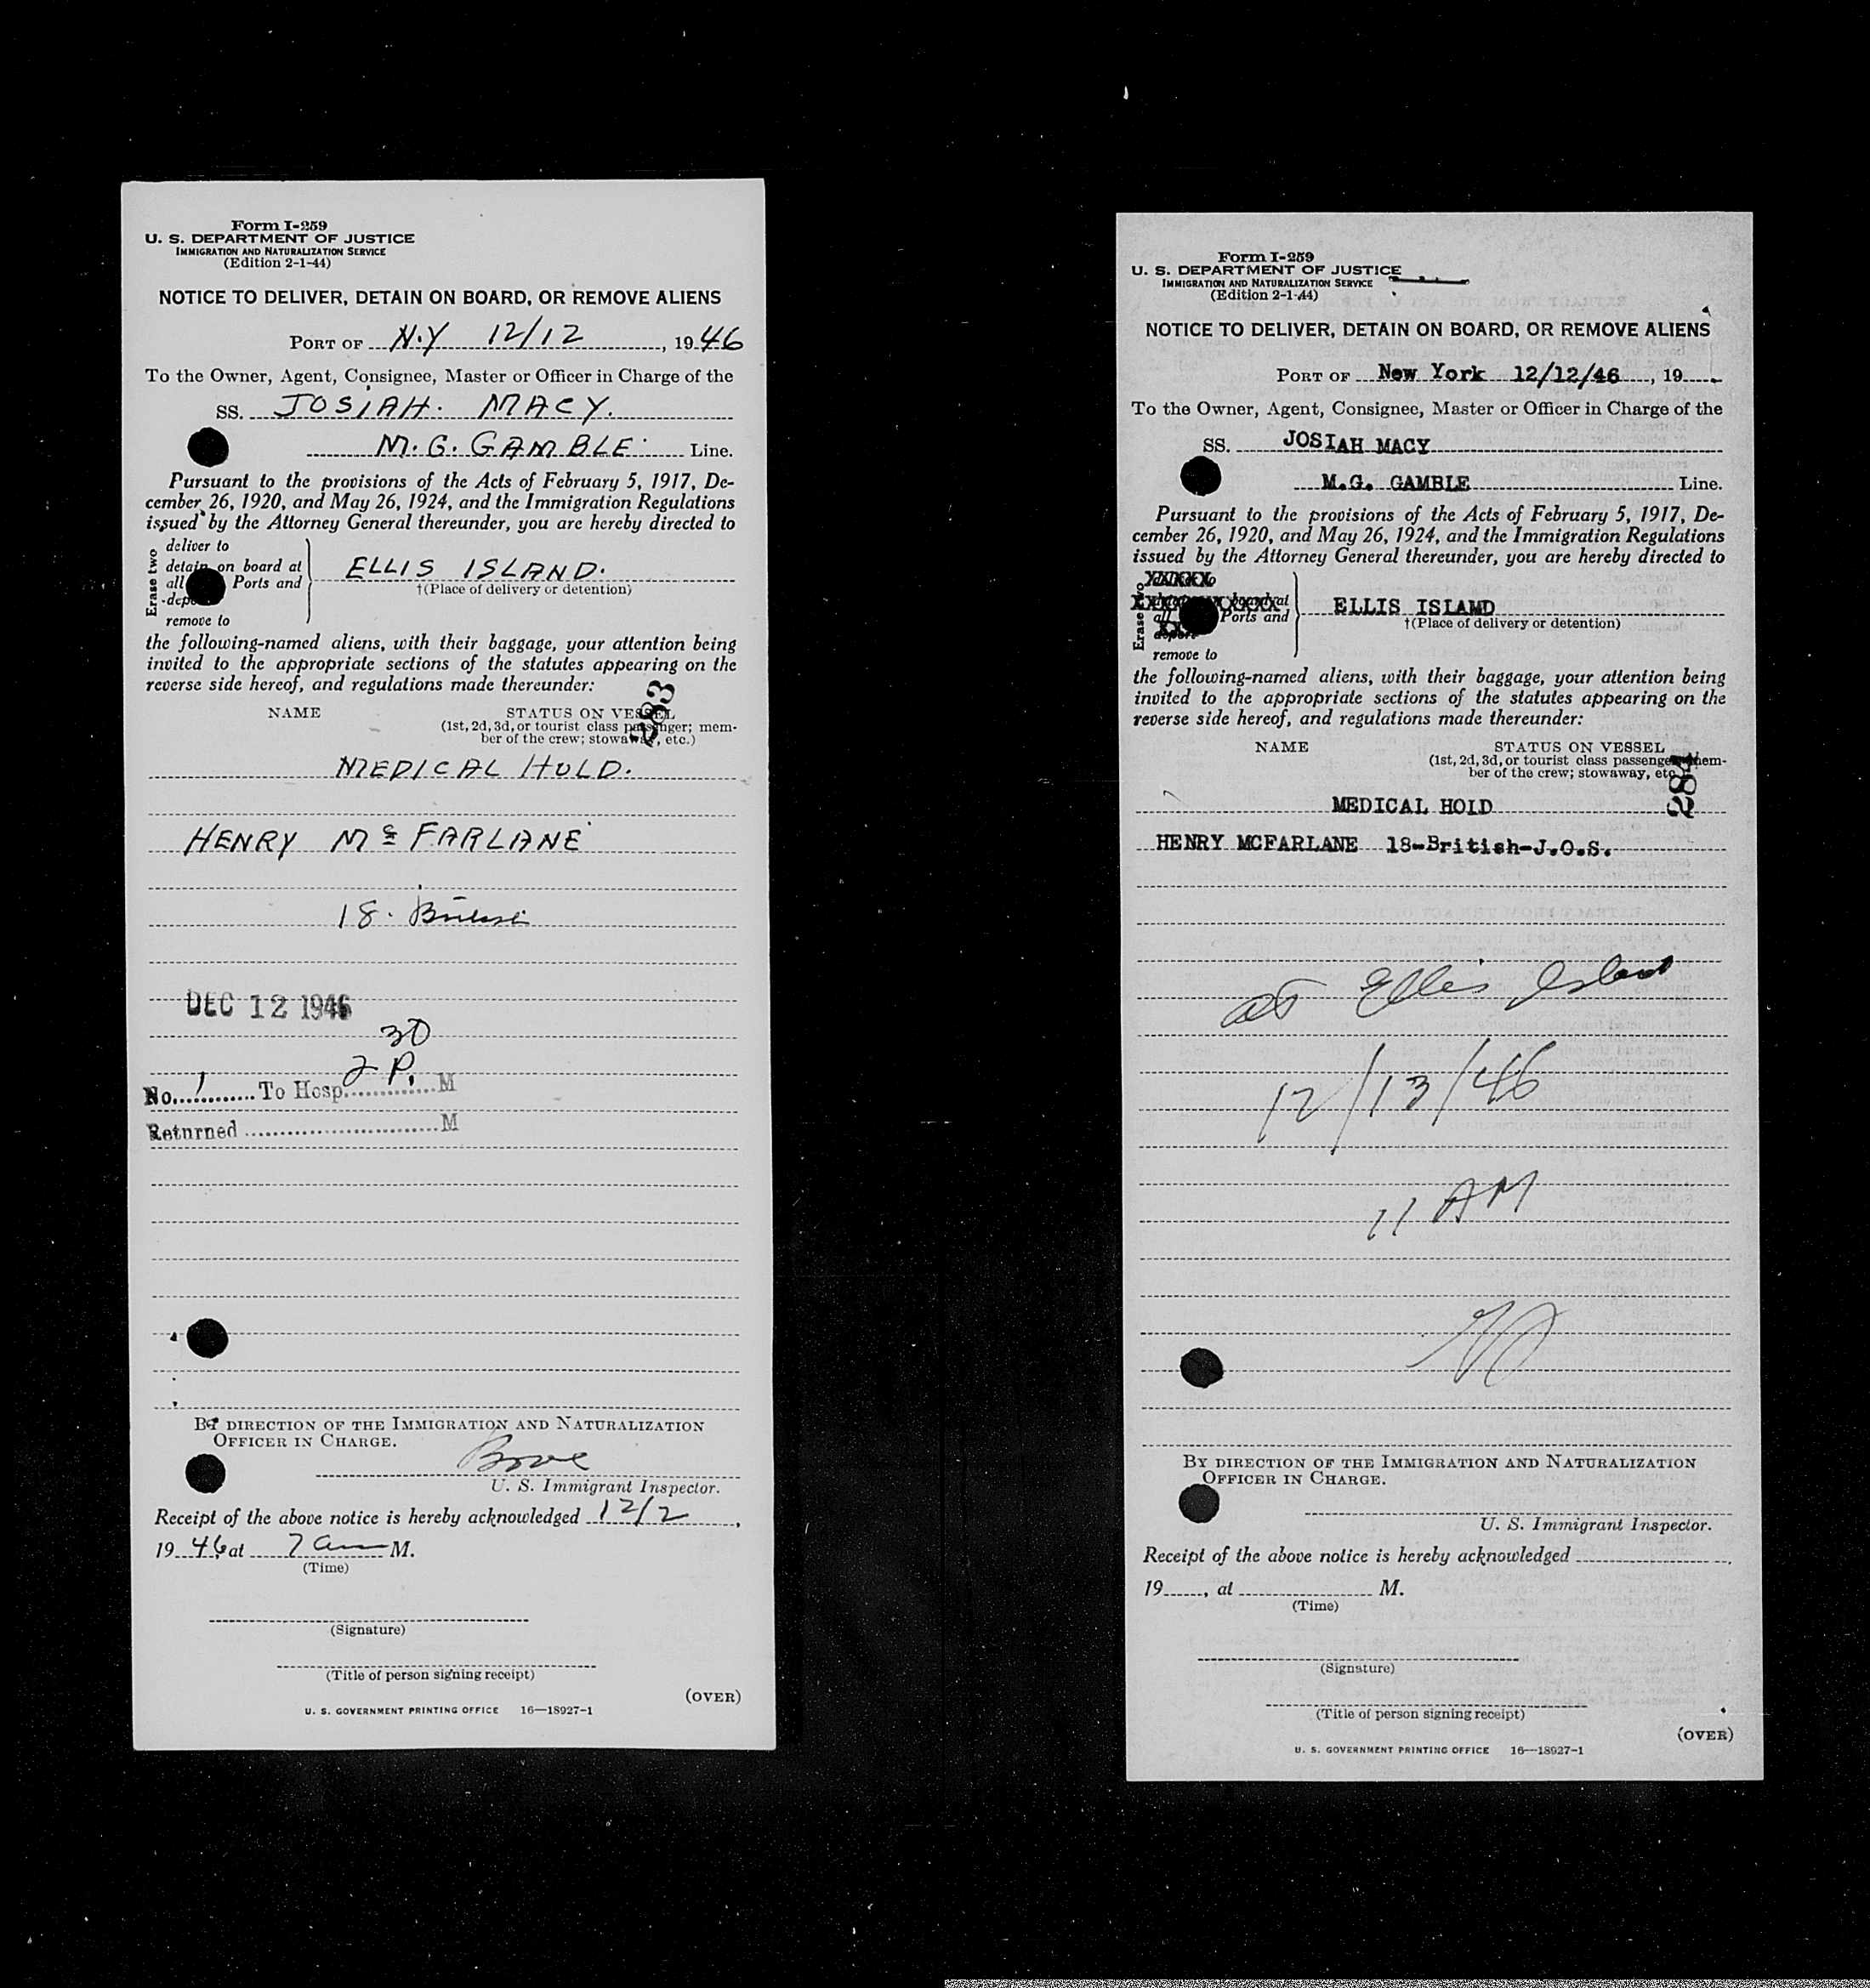 Form I-259
U. S. DEPARTMENT OF JUSTICE
IMMIGRATION AND NATURALIZATION SERVICE
(Edition 2-1-44)
NOTICE TO DELIVER, DETAIN ON BOARD, OR REMOVE ALIENS
PORT OF N.Y 12/12, 1946
To the Owner, Agent, Consignee, Master or Officer in Charge of the
SS. JOSIAH. MACY.
M. G. GAMBLE Line.
Pursuant to the provisions of the Acts of February 5, 1917, De-
cember 26, 1920, and May 26, 1924, and the Immigration Regulations
issued by the Attorney General thereunder, you are hereby directed to
Erase two
deliver to
detain on board at
all Ports and
remove to
ELLIS ISLAND.
†(Place of delivery or detention)
the following-named aliens, with their baggage, your attention being
invited to the appropriate sections of the statutes appearing on the
reverse side hereof, and regulations made thereunder:
283
NAME STATUS ON VESSEL
(1st, 2d, 3d, or tourist class passenger; mem-
ber of the crew; stowaway, etc.)
MEDICAL HOLD.
HENRY Mc FARLANE
18.
DEC 12 1946
30
No. 1 To Hosp. 2 P. M
Returned M
BY DIRECTION OF THE IMMIGRATION AND NATURALIZATION
OFFICER IN CHARGE.
U. S. Immigrant Inspector.
Receipt of the above notice is hereby acknowledged 12/2,
1946 at 7 am M.
(Time)
(Signature)
(Title of person signing receipt)
(OVER)
U. S. GOVERNMENT PRINTING OFFICE 16—18927-1
Form I-259
U. S. DEPARTMENT OF JUSTICE
IMMIGRATION AND NATURALIZATION SERVICE
(Edition 2-1-44)
NOTICE TO DELIVER, DETAIN ON BOARD, OR REMOVE ALIENS
PORT OF New York 12/12/46, 19
To the Owner, Agent, Consignee, Master or Officer in Charge of the
SS. JOSIAH MACY
M.G. GAMBLE Line.
Pursuant to the provisions of the Acts of February 5, 1917, De-
cember 26, 1920, and May 26, 1924, and the Immigration Regulations
issued by the Attorney General thereunder, you are hereby directed to
Erase two
board at
all Ports and
deport
remove to
ELLIS ISLAND
†(Place of delivery or detention)
the following-named aliens, with their baggage, your attention being
invited to the appropriate sections of the statutes appearing on the
reverse side hereof, and regulations made thereunder:
284
NAME STATUS ON VESSEL
(1st, 2d, 3d, or tourist class passenger; mem-
ber of the crew; stowaway, etc.)
MEDICAL HOLD
HENRY MCFARLANE 18-British-J.O.S.
at Ellis Island
12/13/46
11 AM
BY DIRECTION OF THE IMMIGRATION AND NATURALIZATION
OFFICER IN CHARGE.
U. S. Immigrant Inspector.
Receipt of the above notice is hereby acknowledged
19, at M.
(Time)
(Signature)
(Title of person signing receipt)
(OVER)
U. S. GOVERNMENT PRINTING OFFICE 16—18927-1